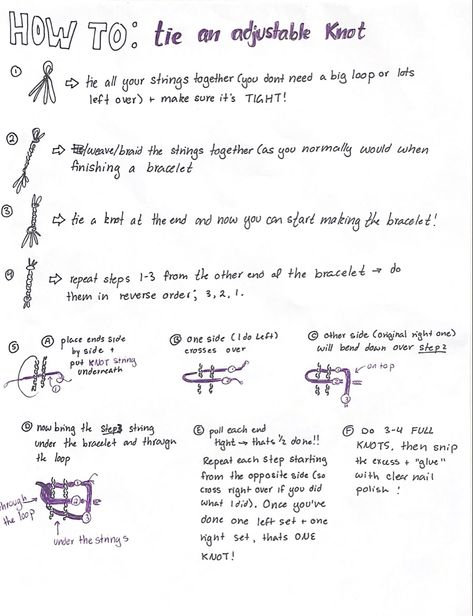 HOW TO: tie an adjustable Knot
① ⇨ tie all your strings together (you dont need a big loop or lots
left over) + make sure it's TIGHT!
② ⇨ /weave/braid the strings together (as you normally would when
finishing a bracelet
③ ⇨ tie a knot at the end and now you can start making the bracelet!
④ ⇨ repeat steps 1-3 from the other end of the bracelet → do
them in reverse order; 3, 2, 1.
⑤
Ⓐ place ends side
by side +
put KNOT string
underneath
1
Ⓑ one side (I do Left)
crosses over
1
2
Ⓒ other side (original right one)
will bend down over step 2
on top
1
2
3
Ⓓ now bring the step 3 string
under the bracelet and through
the loop
through
the loop
1
2
3
under the strings
Ⓔ pull each end
tight → thats ½ done!!
Repeat each step starting
from the opposite side (so
cross right over if you did
what I did). Once you've
done one left set + one
right set, thats ONE
KNOT!
Ⓕ Do 3-4 FULL
KNOTS, then snip
the excess + "glue"
with clear nail
polish!